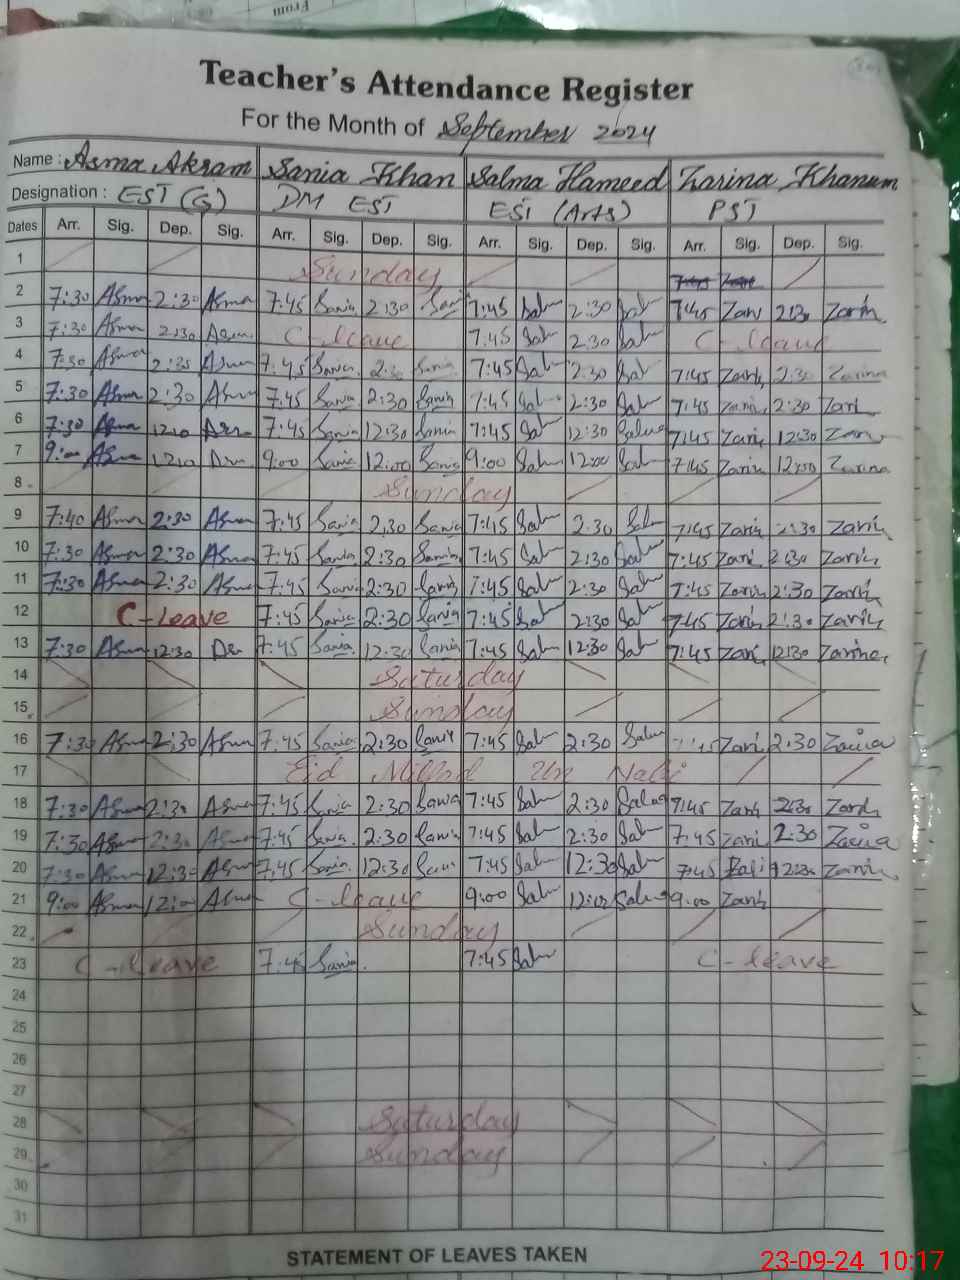 From
Teacher's Attendance Register
For the Month of September 2024
Name : Asma Akram Sania Khan Salma Hameed Zarina Khanum
Designation : EST (G) DM EST EST (Arts) PST
Dates Arr. Sig. Dep. Sig. Arr. Sig. Dep. Sig. Arr. Sig. Dep. Sig. Arr. Sig. Dep. Sig.
1 Sunday
2 7:30 Asma 2:30 Asma 7:45 Sania 2:30 7:45 Sal 2:30 Sal 7:45 Zari 2:30 Zarin
3 7:30 Asma 2:30 Asm C-leave 7:45 Sal 2:30 Sal C-leave
4 7:30 Asma 2:30 Asma 7:45 Sania 2:30 Sania 7:45 Sal 2:30 Sal 7:45 Zarin 2:30 Zarina
5 7:30 Asma 2:30 Asma 7:45 Sania 2:30 Sania 7:45 Sal 2:30 Sal 7:45 Zarin 2:30 Zari
6 7:30 Asma 7:45 Sania 12:30 Sania 7:45 Sal 12:30 Salma 7:45 Zarin 12:30 Zari
7 9:00 Asma 9:00 Sania 12:00 Sania 9:00 Sal 12:00 Sal 7:45 Zarin 12:00 Zarina
8 Sunday
9 7:40 Asma 2:30 Asma 7:45 Sania 2:30 Sania 7:45 Sal 2:30 Sal 7:45 Zarin 2:30 Zarin
10 7:30 Asma 2:30 Asma 7:45 Sania 2:30 Sania 7:45 Sal 2:30 Sal 7:45 Zari 2:30 Zarin
11 7:30 Asma 2:30 Asma 7:45 Sania 2:30 Sania 7:45 Sal 2:30 Sal 7:45 Zarin 2:30 Zarin
12 C-Leave 7:45 Sania 2:30 Sania 7:45 Sal 2:30 Sal 7:45 Zarin 2:30 Zarin
13 7:30 Asma 12:30 7:45 Sania 12:30 Sania 7:45 Sal 12:30 Sal 7:45 Zari 12:30 Zarina
14 Saturday
15 Sunday
16 7:30 Asma 2:30 Asma 7:45 Sania 2:30 Sania 7:45 Sal 2:30 Salm Zari 2:30 Zarina
17 Eid Millad Un Nabi
18 7:30 Asma 2:30 Asma 7:45 Sania 2:30 Sania 7:45 Sal 2:30 Salma 7:45 Zarin 2:30 Zarin
19 7:30 Asma 2:30 Asma 7:45 Sania 2:30 Sania 7:45 Sal 2:30 Sal 7:45 Zari 2:30 Zarina
20 7:30 Asma 12:30 Asma 7:45 Sania 12:30 7:45 Sal 12:30 Sal 7:45 12:30 Zarin
21 9:00 Asma 12:00 Asma C-leave 9:00 Sal 12:00 Salma 9:00 Zarin
22 Sunday
23 C-leave 7:45 Sania 7:45 Sal C-leave
24
25
26
27
28 Saturday
29 Sunday
30
31
STATEMENT OF LEAVES TAKEN
23-09-24 10:17